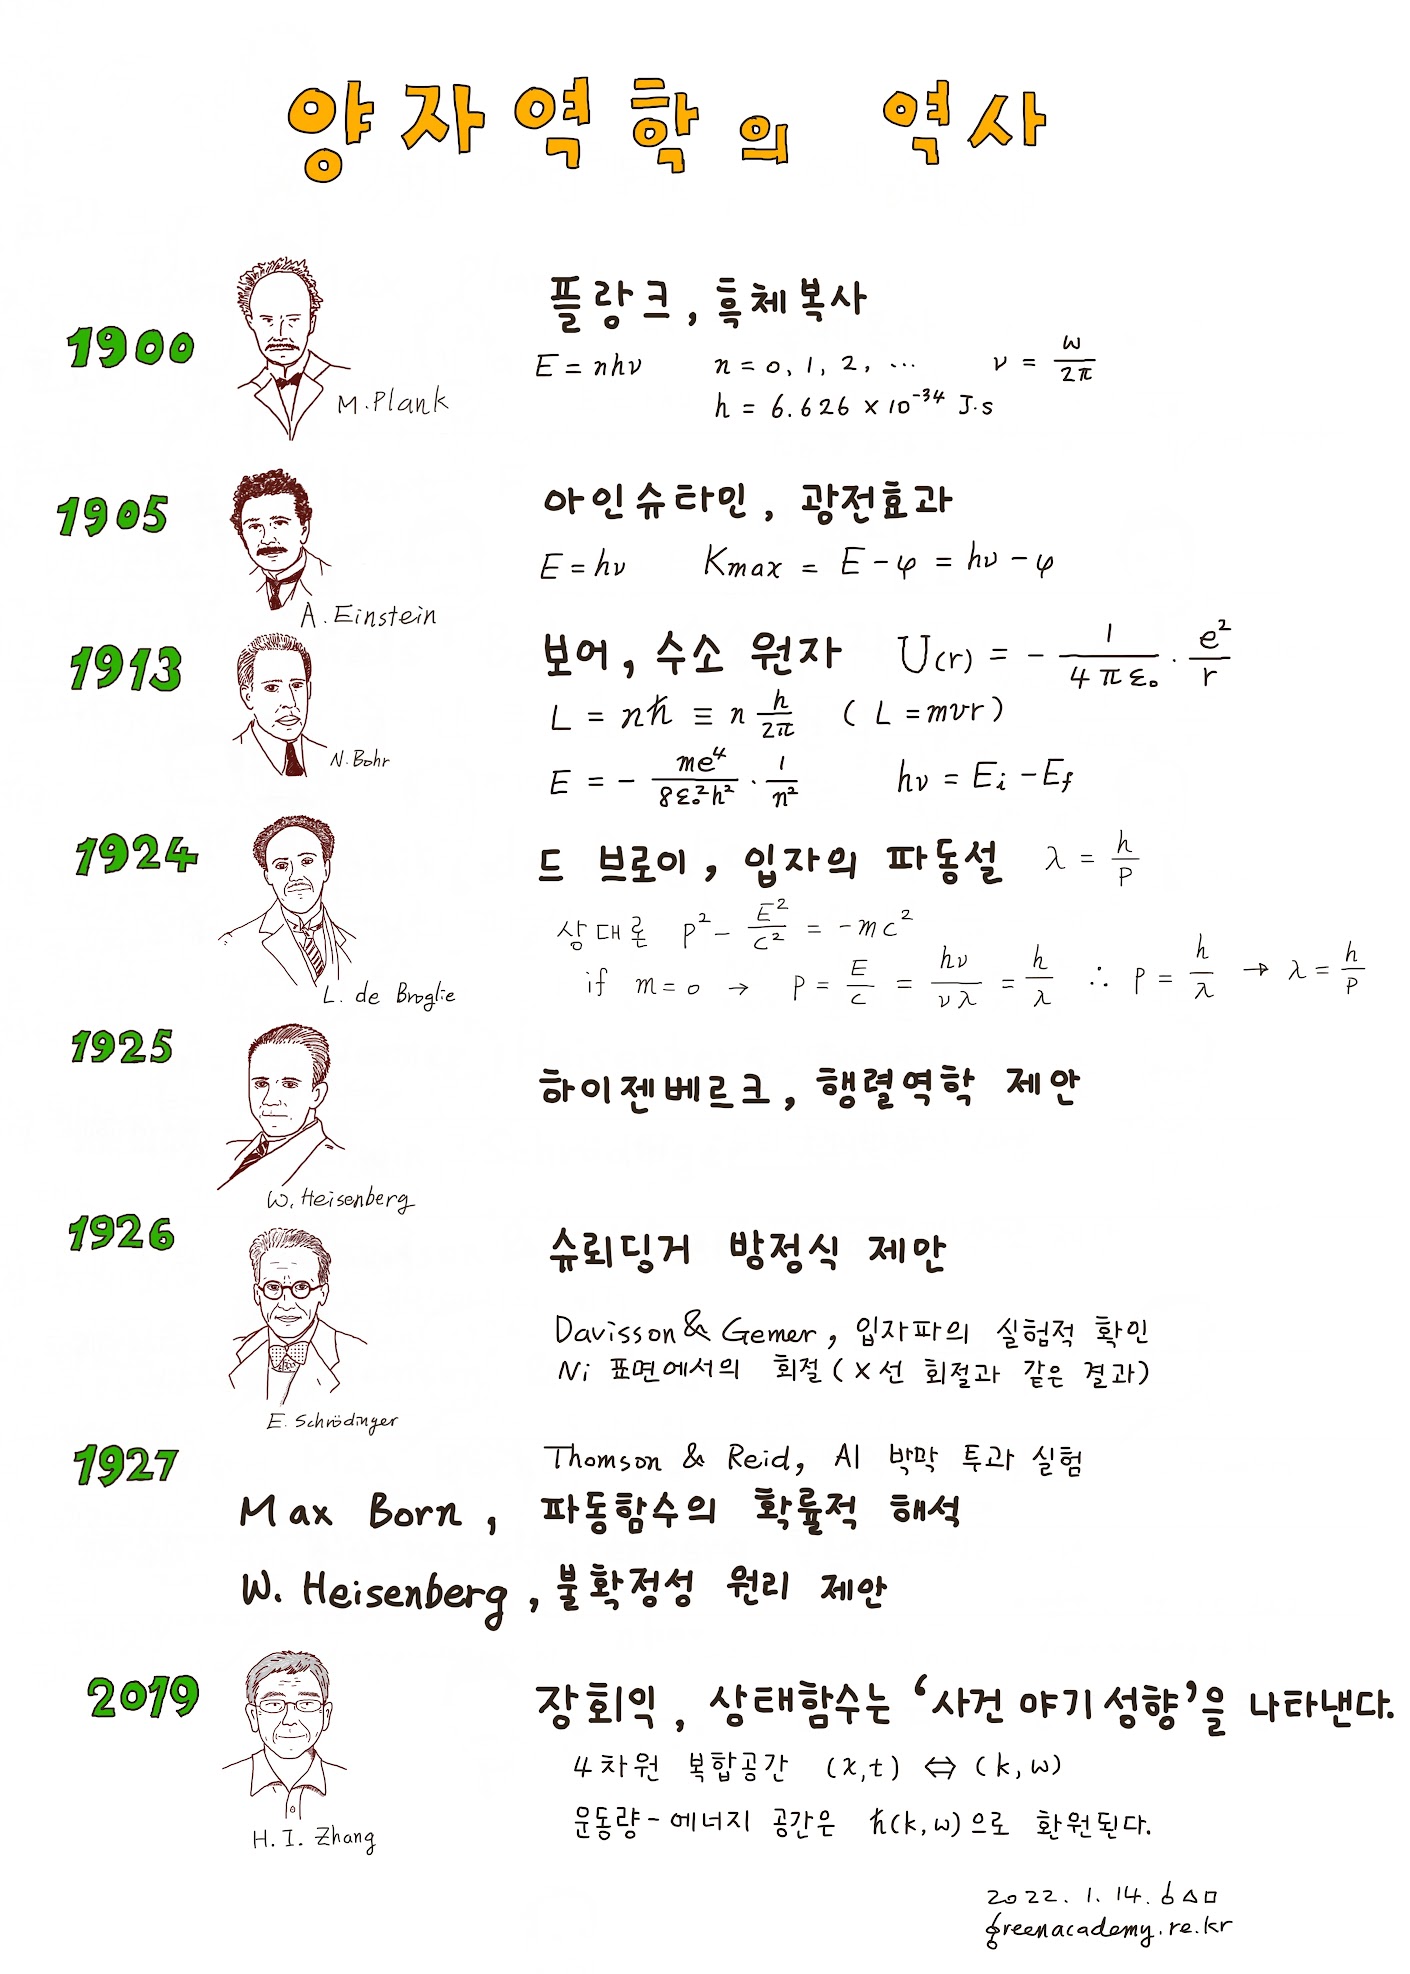 양자역학의 역사
1900
M. Plank
플랑크, 흑체복사
E = nhν n = 0, 1, 2, ⋯ ν = ω/2π
h = 6.626 × 10⁻³⁴ J·s
1905
A. Einstein
아인슈타민, 광전효과
E = hν Kmax = E − φ = hν − φ
1913
N. Bohr
보어, 수소 원자 U(r) = − 1/4πε₀ · e²/r
L = nℏ ≡ n h/2π ( L = mvr )
E = − me⁴/8ε₀²h² · 1/n² hν = Ei − Ef
1924
L. de Broglie
드 브로이, 입자의 파동설 λ = h/p
상대론 p² − E²/c² = −mc²
if m = 0 → p = E/c = hν/νλ = h/λ ∴ p = h/λ → λ = h/p
1925
W. Heisenberg
하이젠베르크, 행렬역학 제안
1926
E. Schrödinger
슈뢰딩거 방정식 제안
Davisson & Gemer, 입자파의 실험적 확인
Ni 표면에서의 회절 ( X선 회절과 같은 결과 )
1927
Thomson & Reid, Al 박막 투과 실험
Max Born, 파동함수의 확률적 해석
W. Heisenberg, 불확정성 원리 제안
2019
H. I. Zhang
장회익, 상태함수는 ‘사건 야기 성향’을 나타낸다.
4차원 복합공간 (x,t) ⇔ (k,ω)
운동량-에너지 공간은 ℏ(k,ω)으로 환원된다.
2022. 1. 14.
greenacademy.re.kr